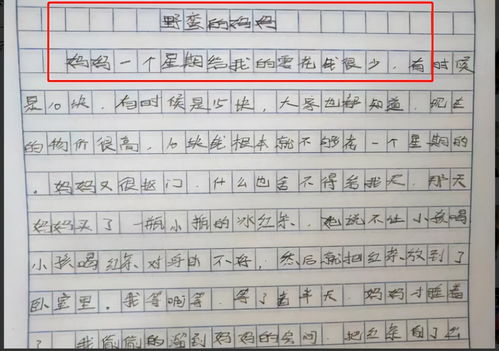 野蛮的妈妈
妈妈一个星期给我的零花钱很少，有时候
是10块，有时候是15块，大家也都知道，现在
的物价很高，10块钱根本就不够花一个星期的
，妈妈又很抠门，什么也舍不得给我买，那天
妈妈买了一瓶小瓶的冰红茶，她说不让小孩喝
小孩喝红茶对身体不好，然后就把红茶放到了
卧室里，我等啊等，等了有半天，妈妈才睡着
了，我偷偷的溜到妈妈的房间，把红茶